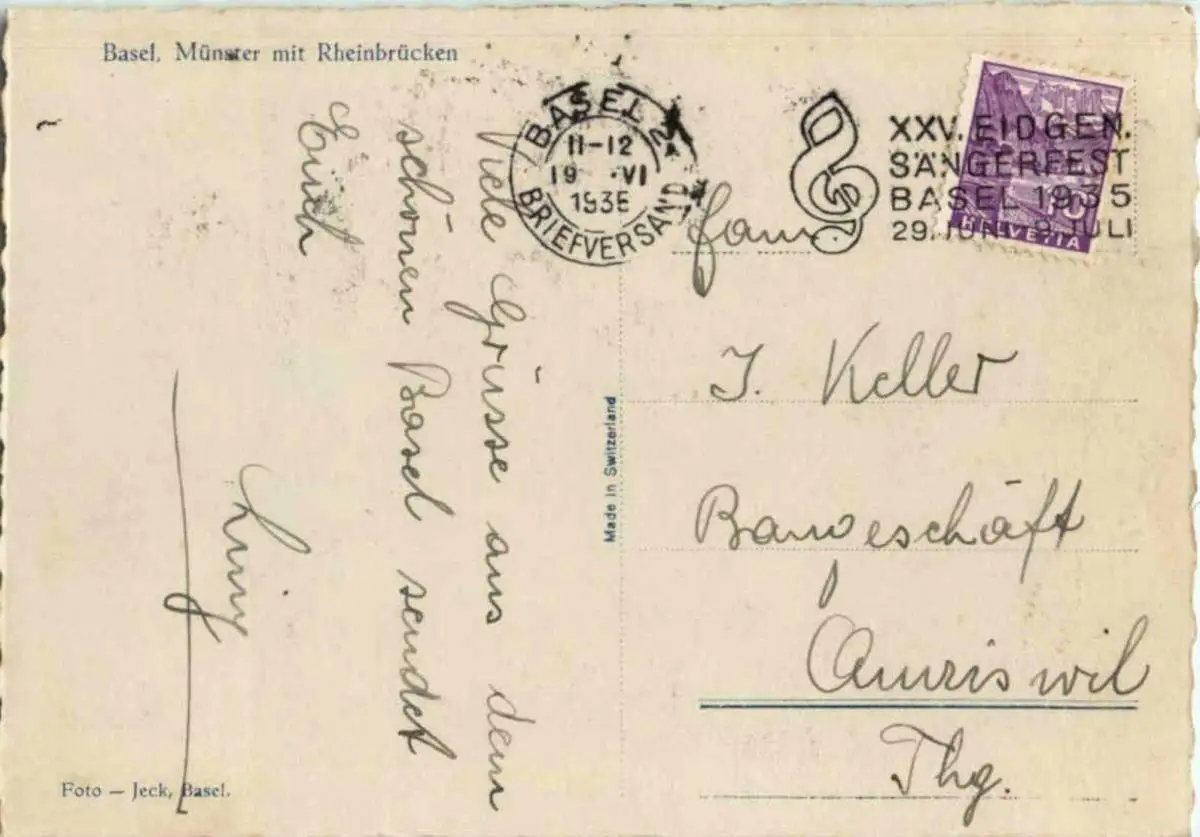 Basel, Münster mit Rheinbrücken
Viele Grüsse aus dem
schönen Basel sendet
Euch
Foto — Jeck, Basel.
Made in Switzerland
BASEL 2
11-12
19 VI
1935
BRIEFVERSAND
XXV. EIDGEN.
SÄNGERFEST
BASEL 1935
29. JUNI 9. JULI
10
HELVETIA
Fam.
J. Keller
Baugeschäft
Amriswil
Thg.